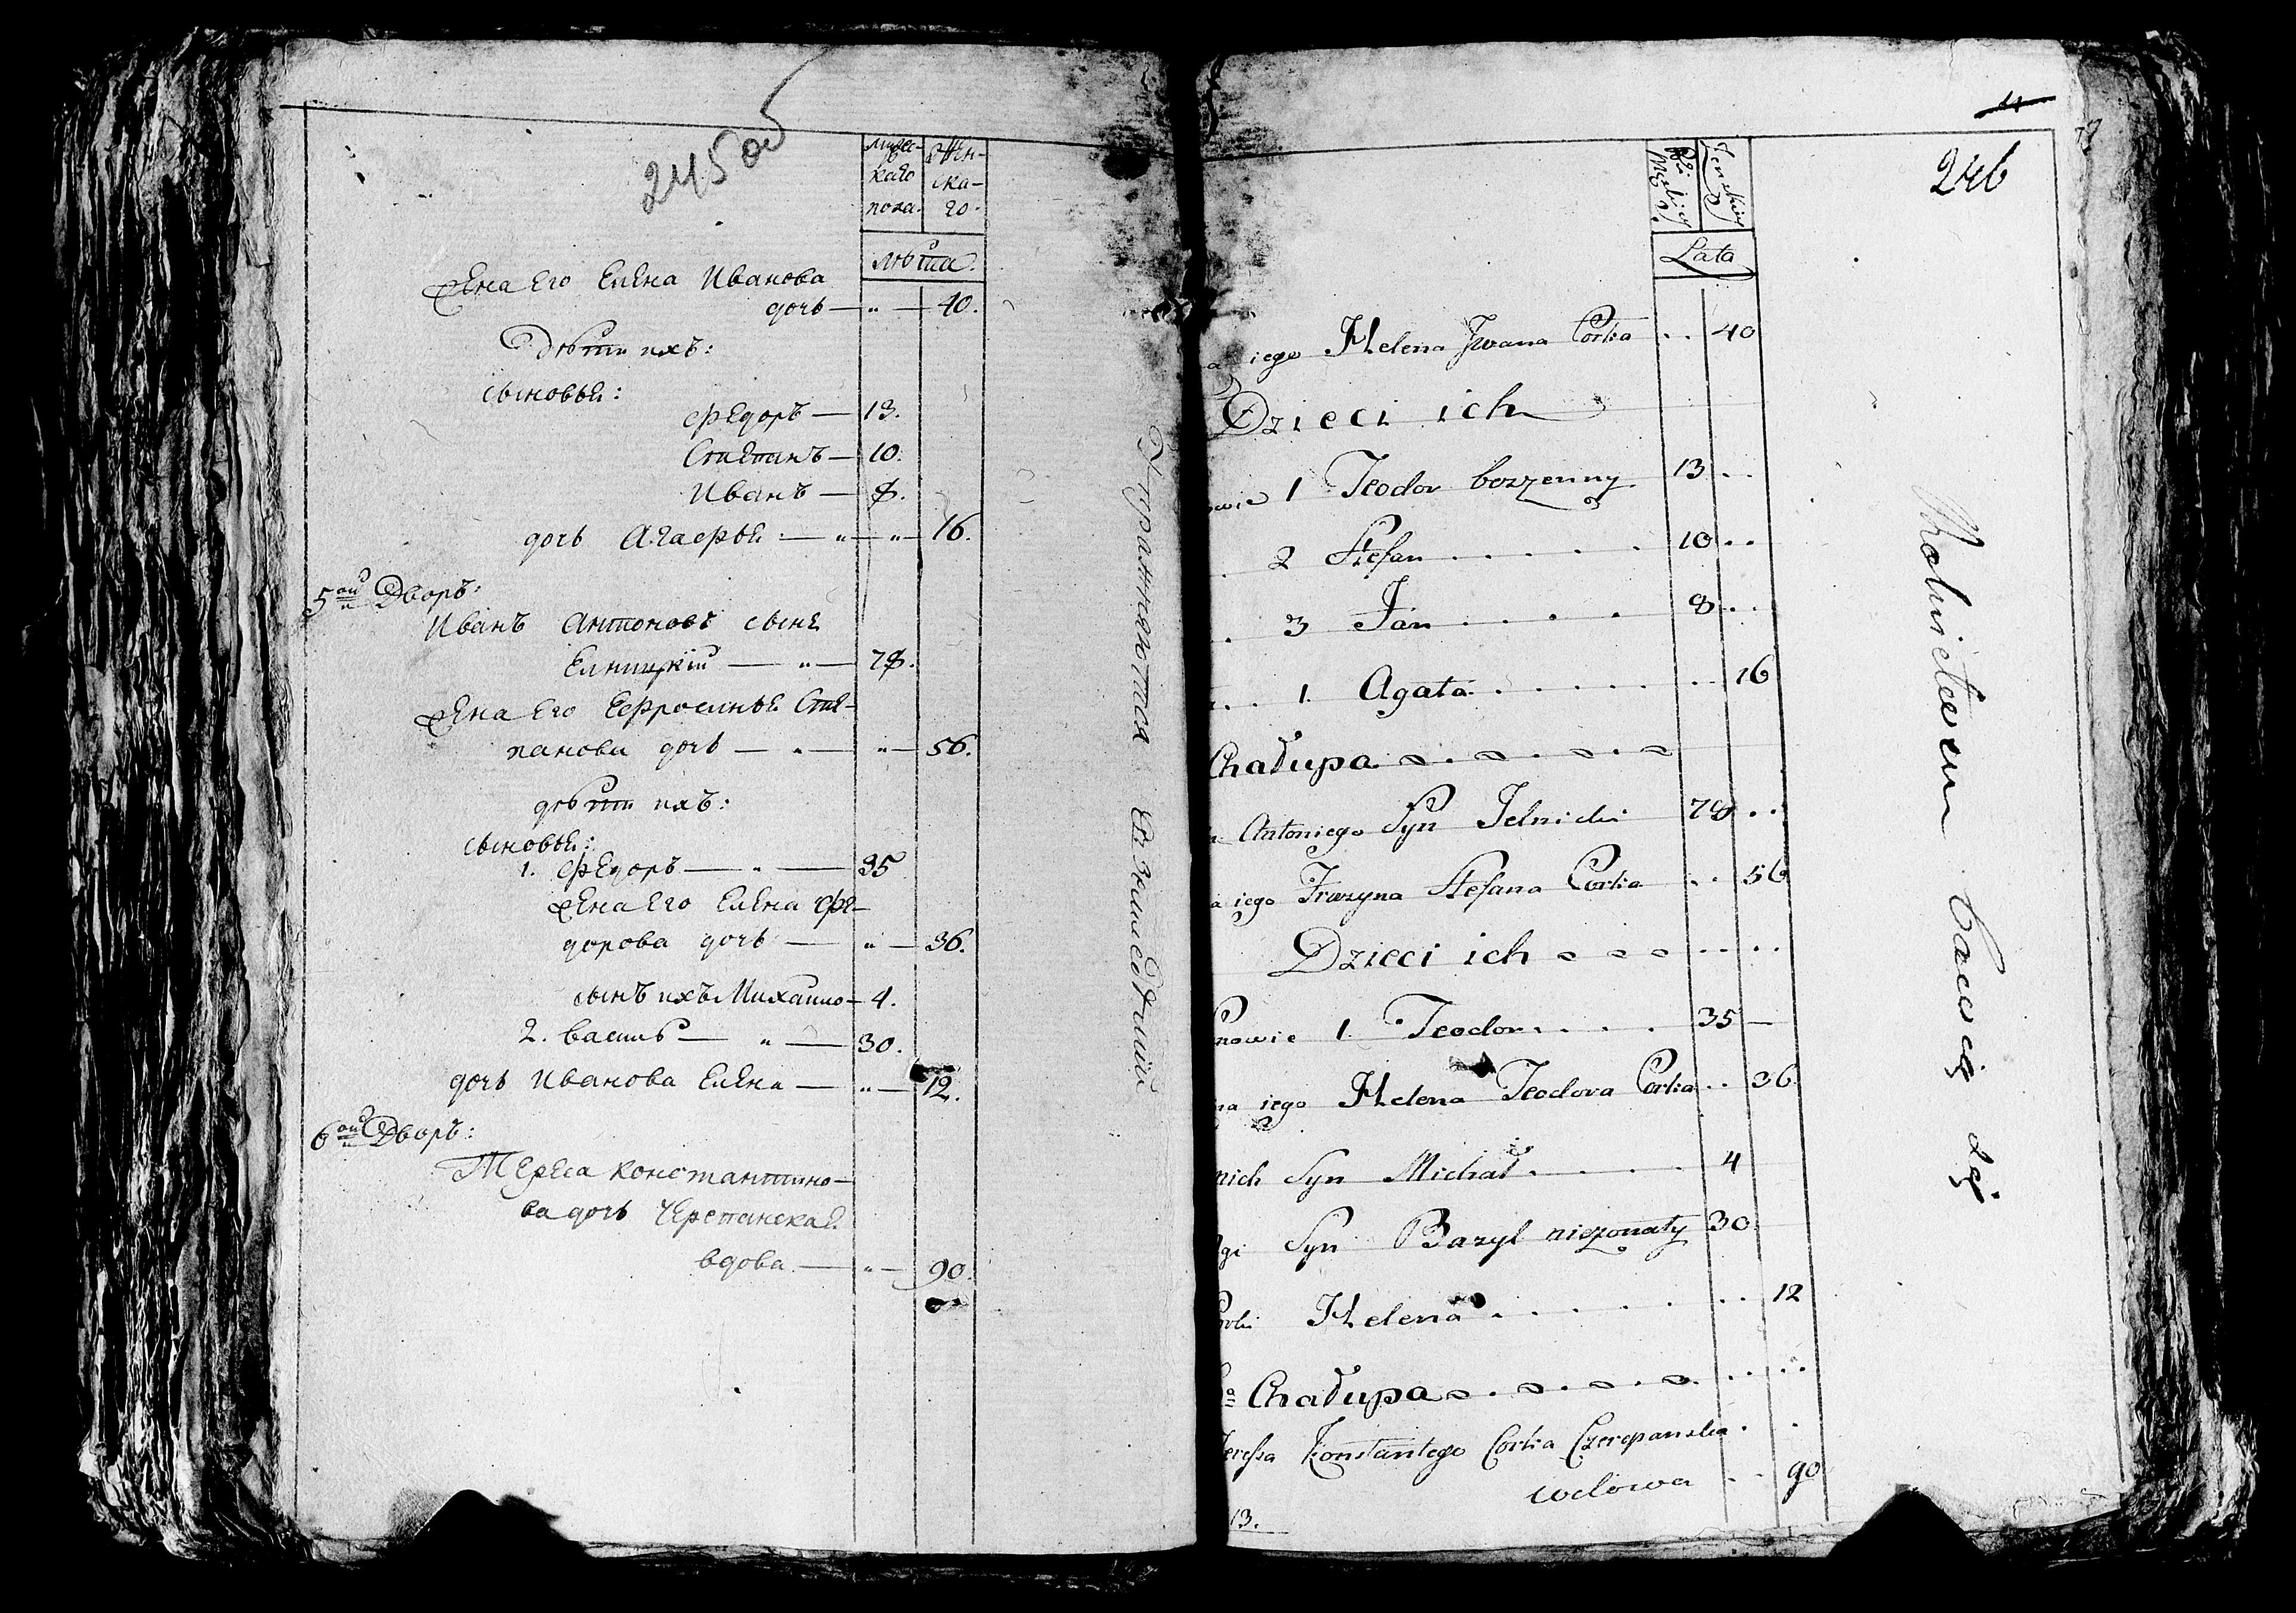 245 об
мужес-
каго
пола.
Жен-
ска-
го.
лѣта.
Жена Его Елена Иванова
дочь — " — 40.
Дѣти ихъ:
сыновья:
Федоръ — 13.
Степанъ — 10.
Иванъ — 8.
дочь Агафья — " — " — 16.
5ой Дворъ:
Иванъ Антоновъ сынъ
Елницкій — " — 78.
Жена Его Ефросинья Сте-
панова дочь — " — " — 56.
дѣти ихъ:
сыновья:
1. Федоръ — " — 35
Жена Его Елена Фе-
дорова дочь — " — 36.
сынъ ихъ Михайло — 4.
2. Василь — " — 30.
дочь Иванова Елена — " — 12.
6ой Дворъ:
Тереса Константино-
ва дочь Черепанская
вдова — " — 90.
11
246
Męskiey
Żenskiey
Lata
a iego Helena Jwana Corka . . 40
Dzieci ich
owie 1 Teodor bezzenny 13 . .
2 Stefan . . . . . 10 . .
. 3 Jan . . . . 8 . .
. . 1. Agata . . . . . . . 16
Chałupa
Antoniego Syn Jelnicki 78 . .
a iego Fruzyna Stefana Corka . . 56
Dzieci ich . . . .
nowie 1. Teodor . . . . 35 —
na iego Helena Teodora Corka . . 36
nich Syn Michał . . . . 4
gi Syn Bazyl nieżonaty 30
Helena . . . . . . . 12
Chałupa . . . .
Teressa Konstantego Corka Czerepanska .
wdowa . . 90
13.